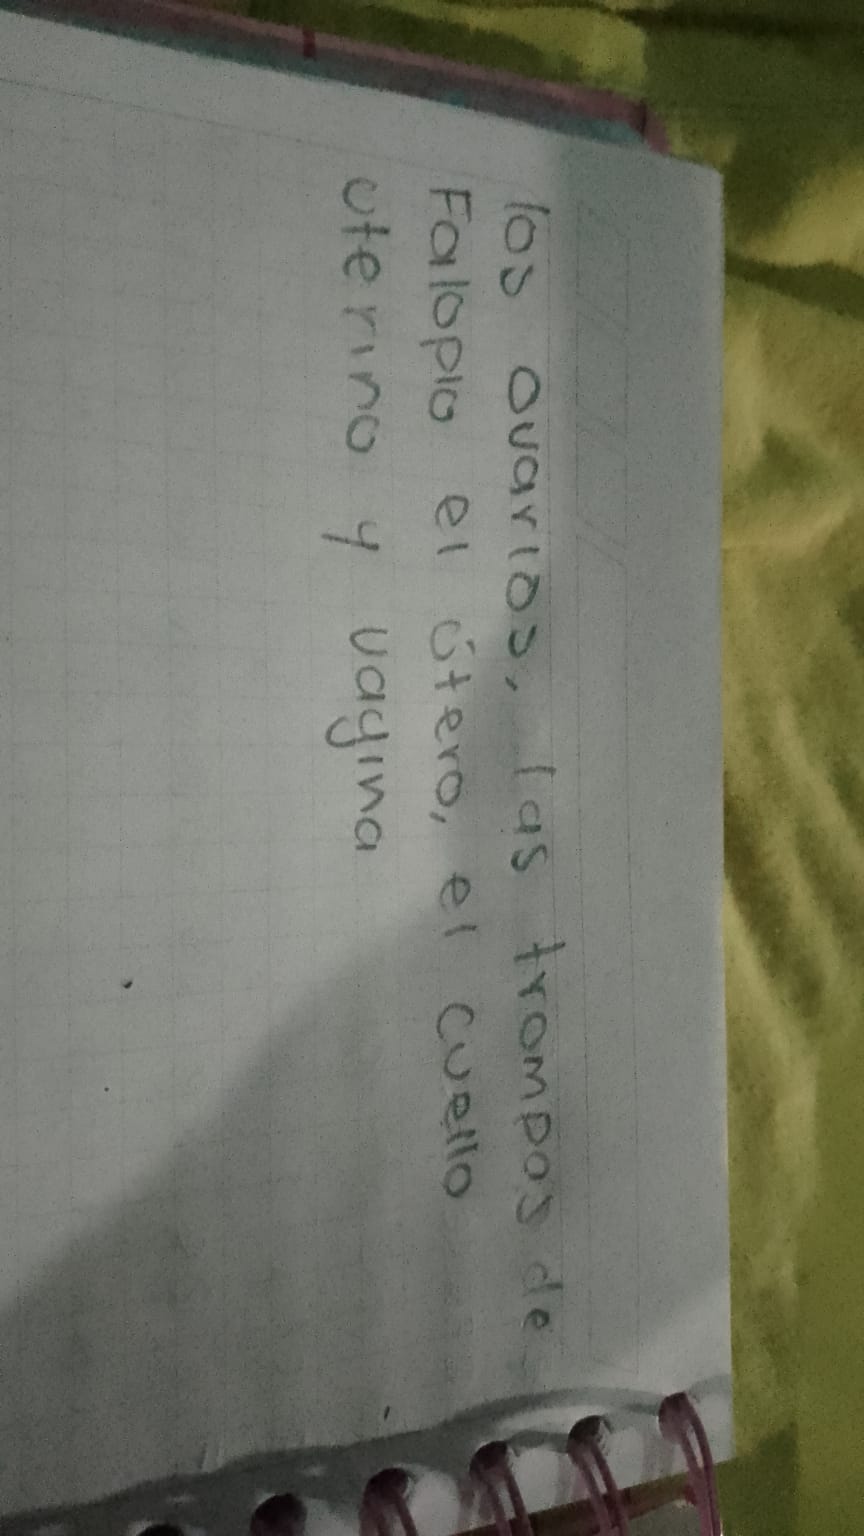 los ovarios, las trompos de
Falopio el útero, el cuello
uterino y vagina